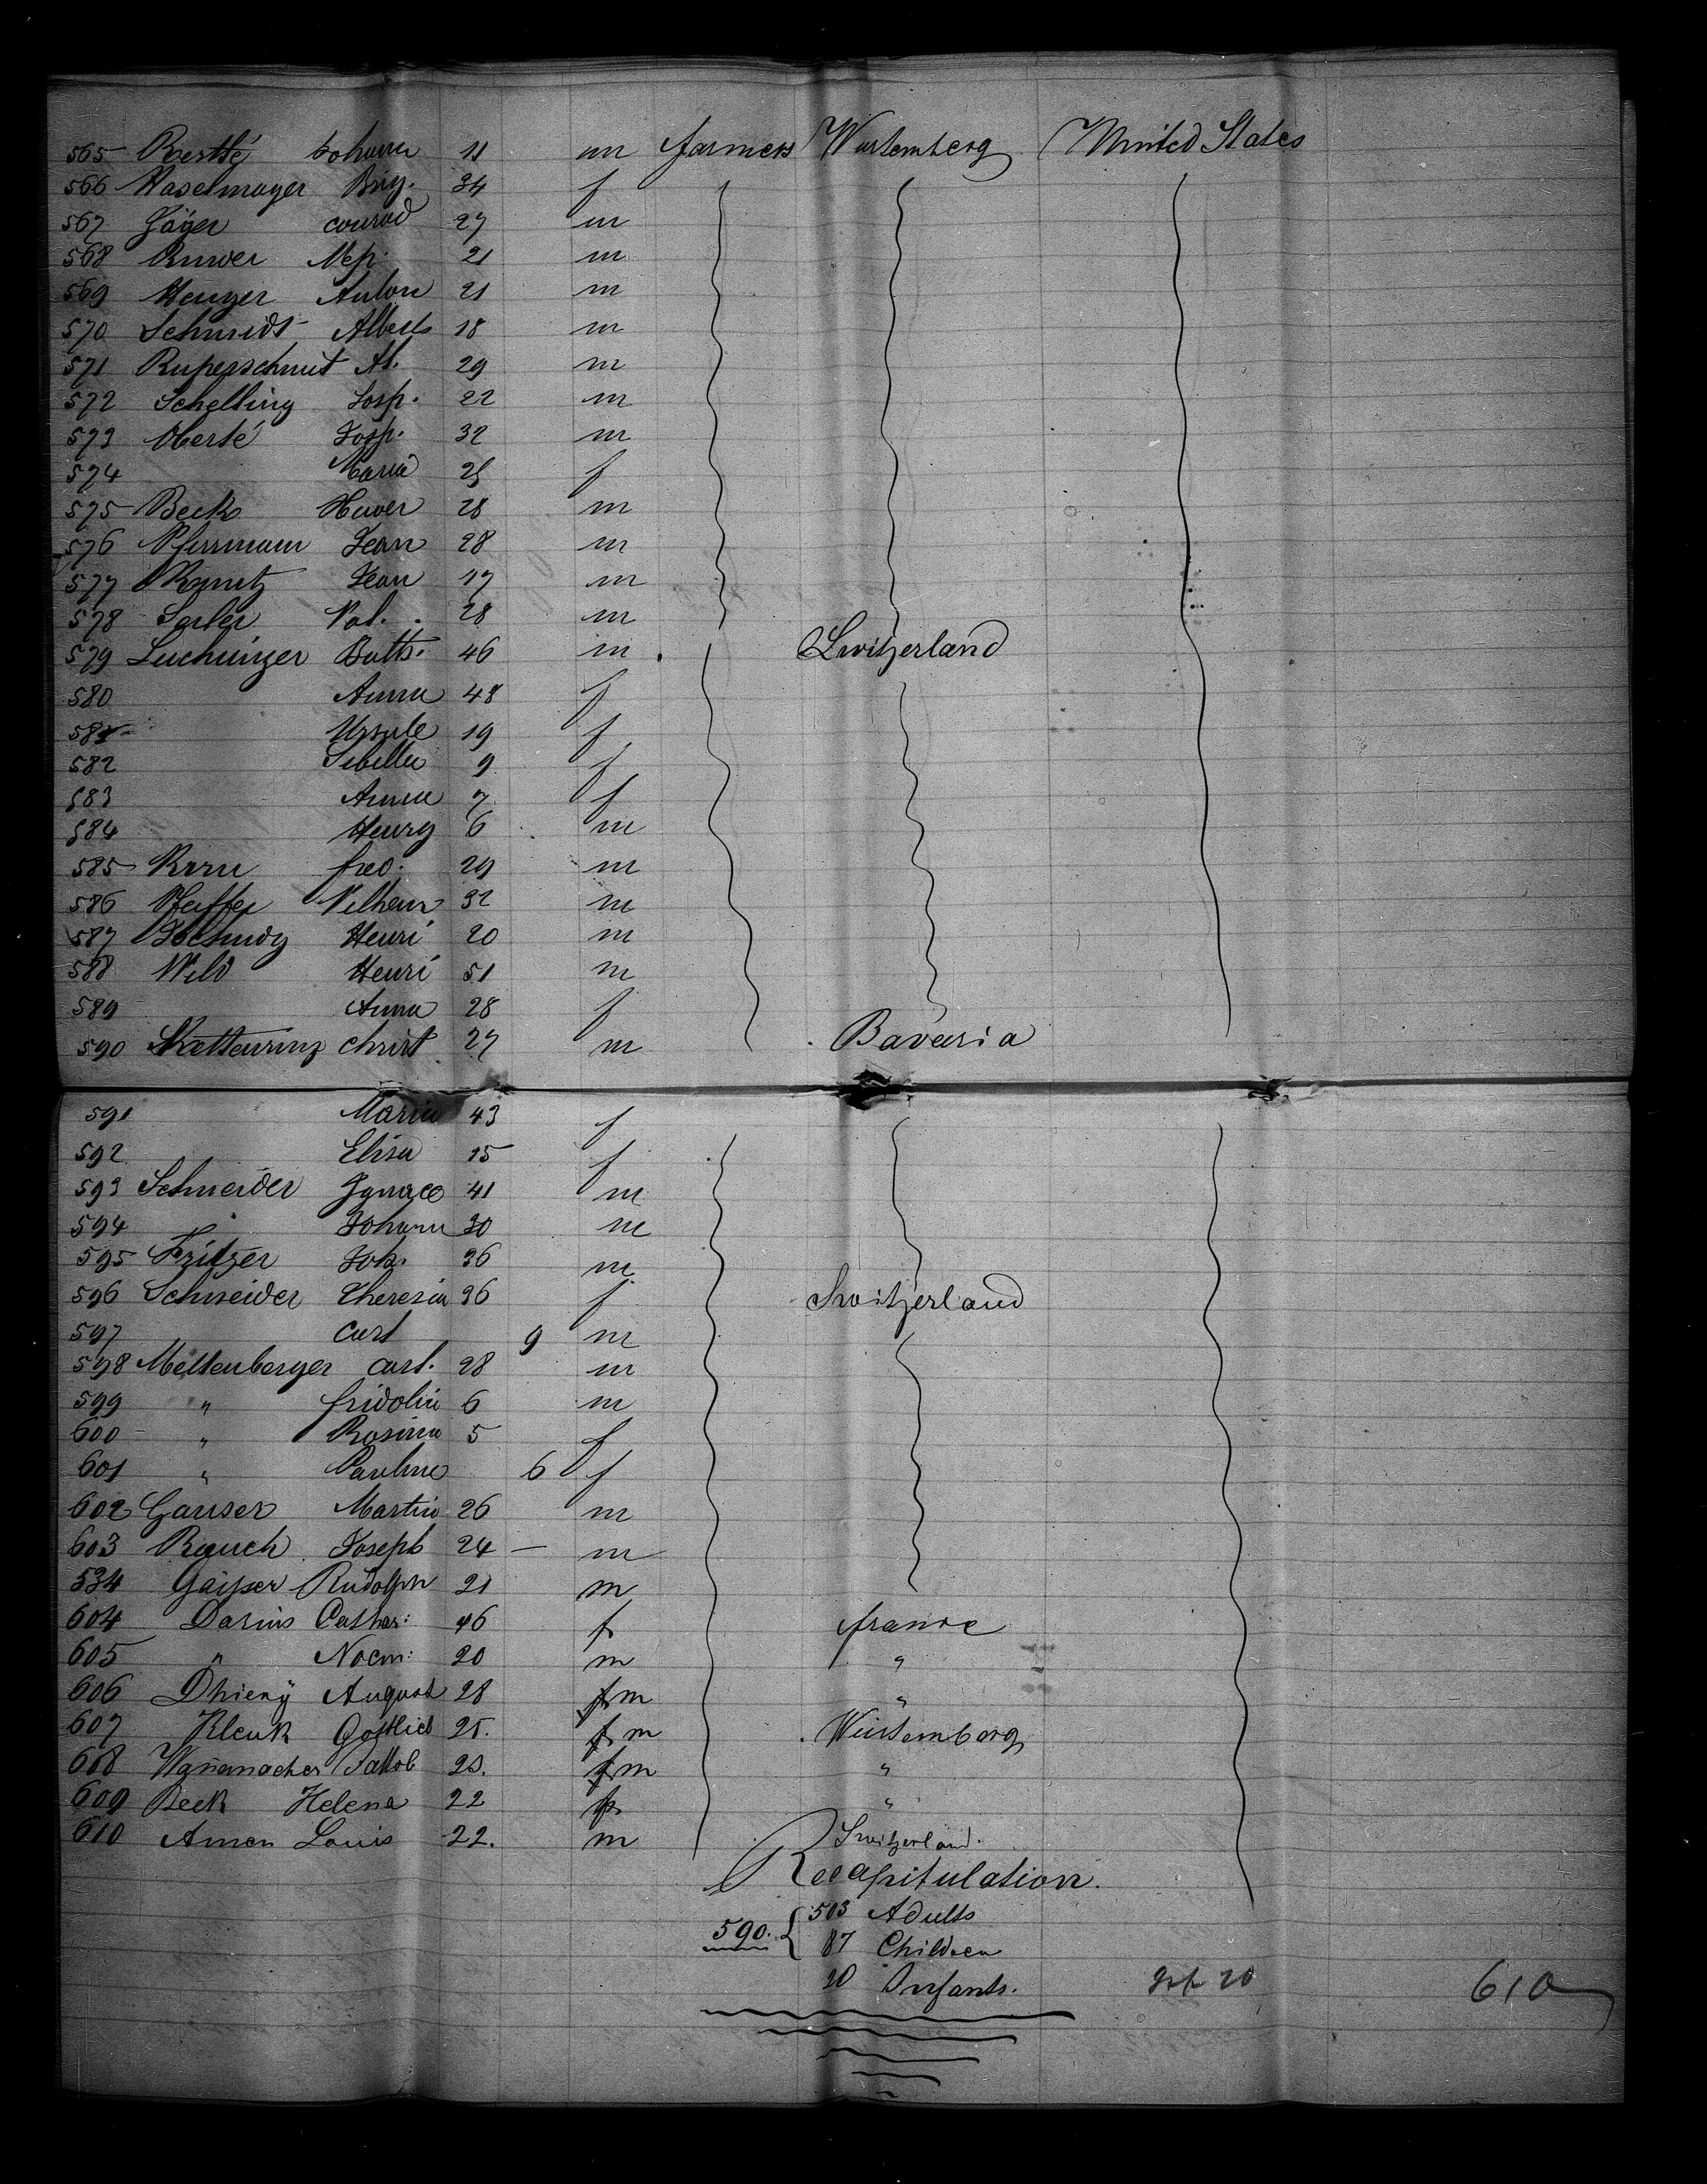 565 Bertlé Johann 11 m farmers Wurtemberg United States
566 Haselmayer Brig. 34 f
567 Jäger conrad 27 m
568 Nep. 21 m
569 Henger Anton 21 m
570 Schmidt Albert 18 m
571 Al. 29 m
572 Schelling Josp. 22 m
573 Oberlé Josp. 32 m
574 Maria 25 f
575 Beck 28 m
576 Jean 28 m
577 Jean 17 m
578 28 m
579 Luchinger Balth. 46 m Switzerland
580 Anna 48 f
581 Ursule 19 f
582 Sibella 9 f
583 Anna 7 f
584 Henry 6 m
585 fred. 29 m
586 Pfeiffer 32 m
587 Henri 20 m
588 Wild Henri 51 m
589 Anna 28 f
590 christ 27 m Bavaria
591 Maria 43 f
592 Elisa 15 f
593 Schneider Ignace 41 m
594 Johann 30 m
595 Joh. 36 m
596 Schneider Theresia 36 f Switzerland
597 Carl 9 m
598 Meltenberger carl. 28 m
599 " fridolin 6 m
600 " Rosina 5 f
601 " Pauline 6 f
602 Gauser Martin 26 m
603 Rauch Joseph 24 — m
534 Gaipser Rudolph 21 m
604 Darius Cathar: 46 f france
605 " 20 m "
606 August 28 m "
607 Klenk Gottlieb 25. m Würtemberg
608 Jakob m "
609 Beck Helena 22 f "
610 Amen Louis 22. m Switzerland.
Recapitulation.
590. { 503 Adults
87 Children
20 Infants. Inf 20 610